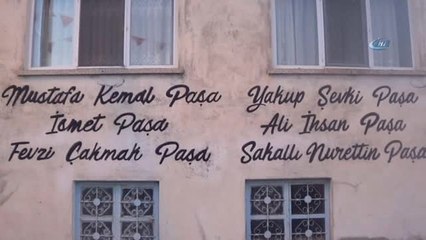 Mustafa Kemal Paşa
İsmet Paşa
Fevzi Çakmak Paşa
Yakup Şevki Paşa
Ali İhsan Paşa
Sakallı Nurettin Paşa